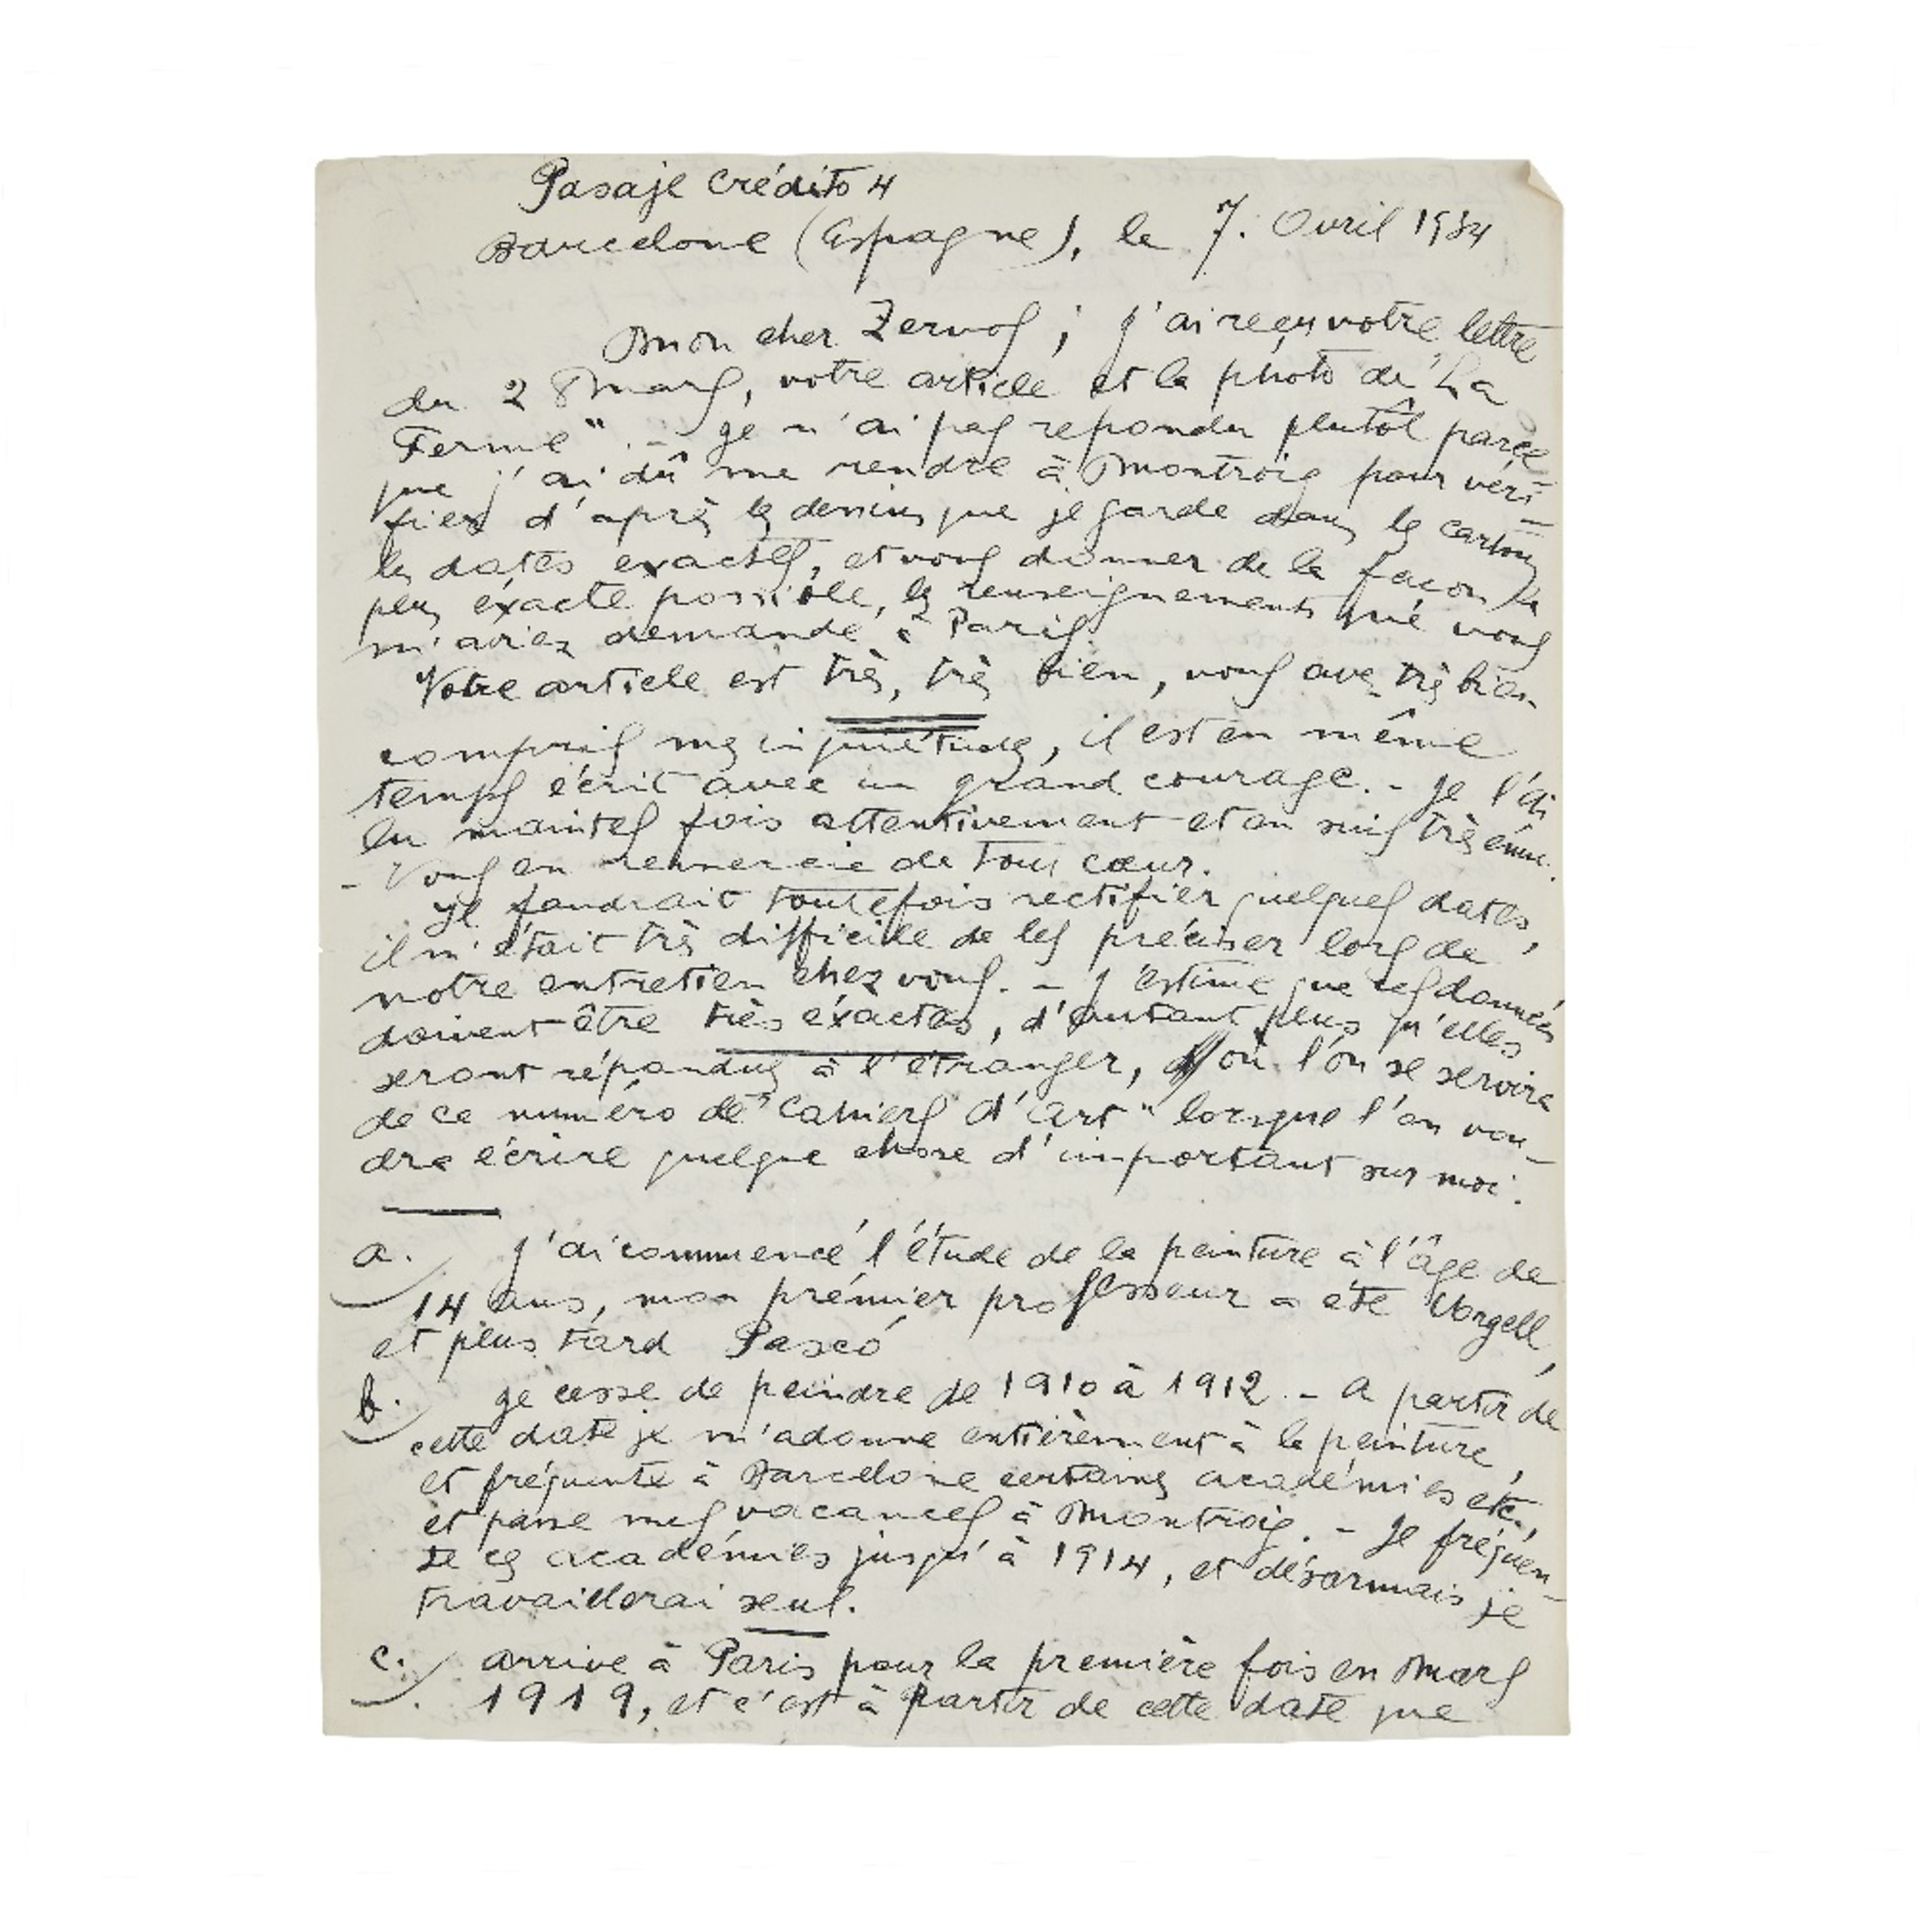 Pasaje Crédito 4
Barcelone (Espagne), le 7. Avril 1934
Mon cher Zervos ; j'ai reçu votre lettre
du 28 Mars, votre article et la photo de "La
Ferme". - Je n'ai pas repondu plutôt parce
que j'ai dû me rendre à Montroig pour véri-
fier d'après les dessins que je garde dans les cartons
les dates exactes, et vous donner de la façon la
plus éxacte possible, les renseignements que vous
m'aviez demandé à Paris.
Votre article est très, très bien, vous avez très bien
compris mes inquiétudes, il est en même
temps écrit avec un grand courage. - Je l'ai
lu maintes fois attentivement et en suis très ému.
- Vous en remercie de tout cœur.
Il faudrait toutefois rectifier quelques dates,
il m'était très difficile de les préciser lors de
notre entretien chez vous. - J'estime que ces données
doivent être très éxactes, d'autant plus qu'elles
seront répandues à l'étranger, où l'on se servira
de ce numéro de "Cahiers d'Art" lorsque l'on vou-
dra écrire quelque chose d'important sur moi.
a. J'ai commencé l'étude de la peinture à l'âge de
14 ans, mon prémier professeur a été Urgell,
et plus tard Pascó
b. Je cesse de peindre de 1910 à 1912. - A partir de
cette date je m'adonne entièrement à la peinture,
et fréquente à Barcelone certaines académies etc.,
et passe mes vacances à Montroig. - Je fréquen-
te ces académies jusqu'à 1914, et désormais je
travaillerai seul.
c. arrive à Paris pour la première fois en Mars
1919, et c'est à partir de cette date que